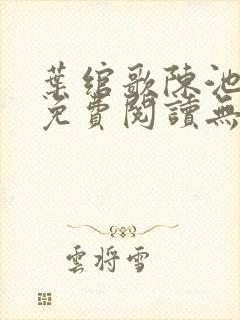 葉綰歌陳池
免費閱讀無
雲將雪